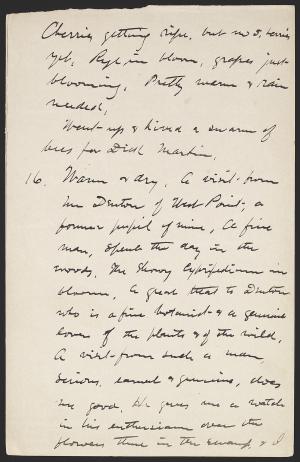 Cherries getting ripe, but no s. berries
yet. Rye in bloom, grapes just
blooming. Pretty warm & rain
needed.
Went up & hived a swarm of
bees for Dick Martin.
16. Warm & dry. A visit from
Mr Denton of West Point, a
former pupil of mine, A fine
man, spent the day in the
woods. The Showy Cypripedium in
bloom. A great treat to Denton
who is a fine botanist & a genuine
lover of the plants & of the wild.
A visit from such a man,
serious, earnest & genuine, does
me good. He gives me a watch
in his enthusiasm over the
flowers there in the swamp, & I